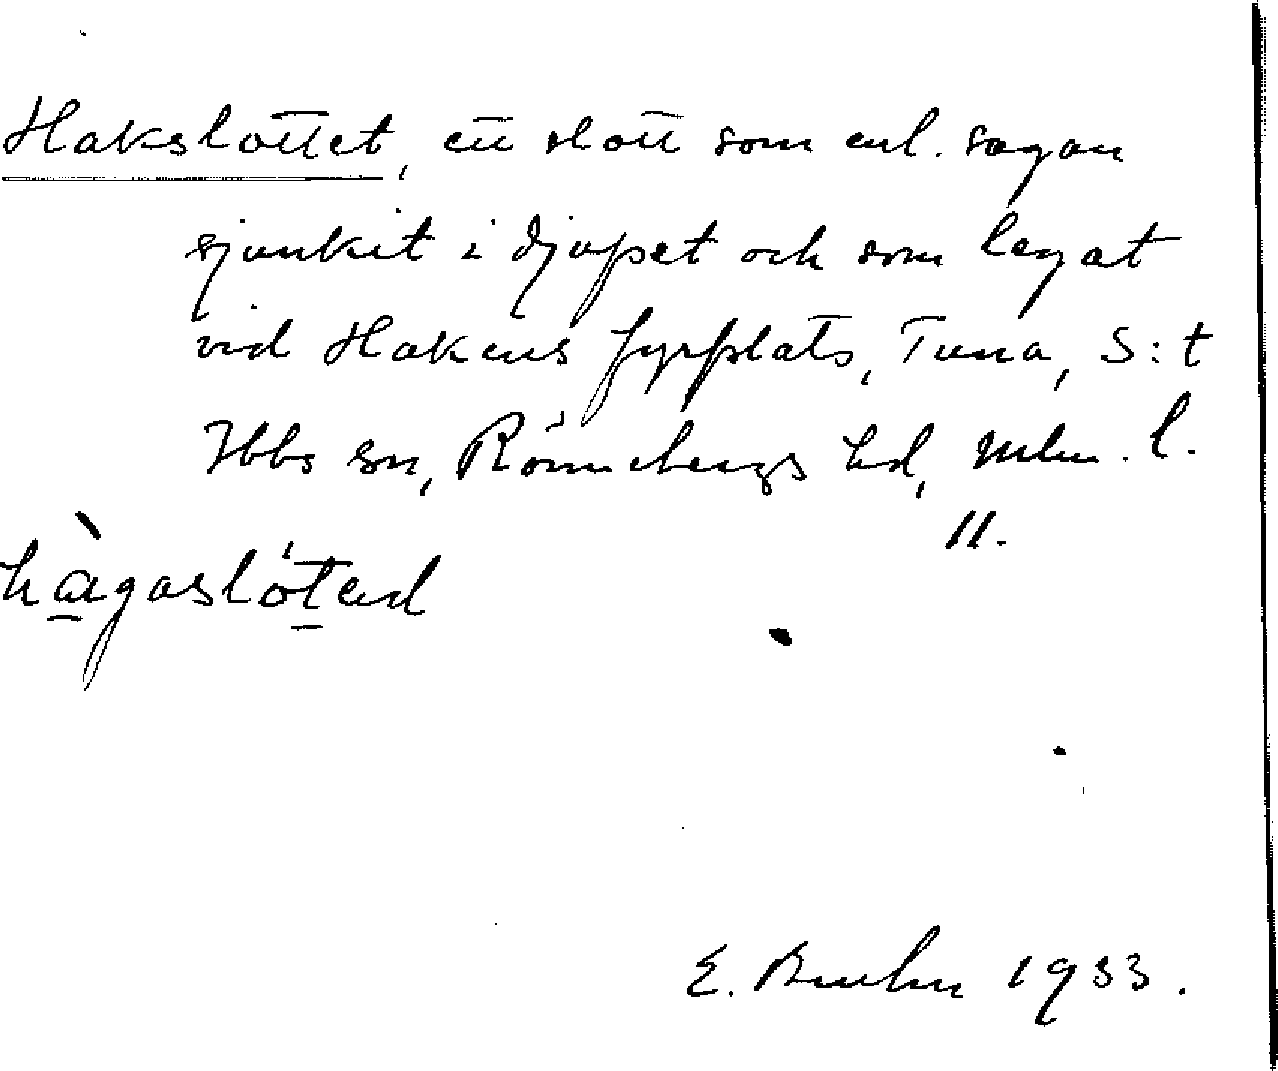 Hakslottet, ett slott som enl. sagan
sjunkit i djupet och som legat
vid Hakens fyrplats, Tuna, S:t
Ibbs sn, Rönnebergs hd, Mlm. l.
11.
hàgaslóted
E. Bruhn 1933.